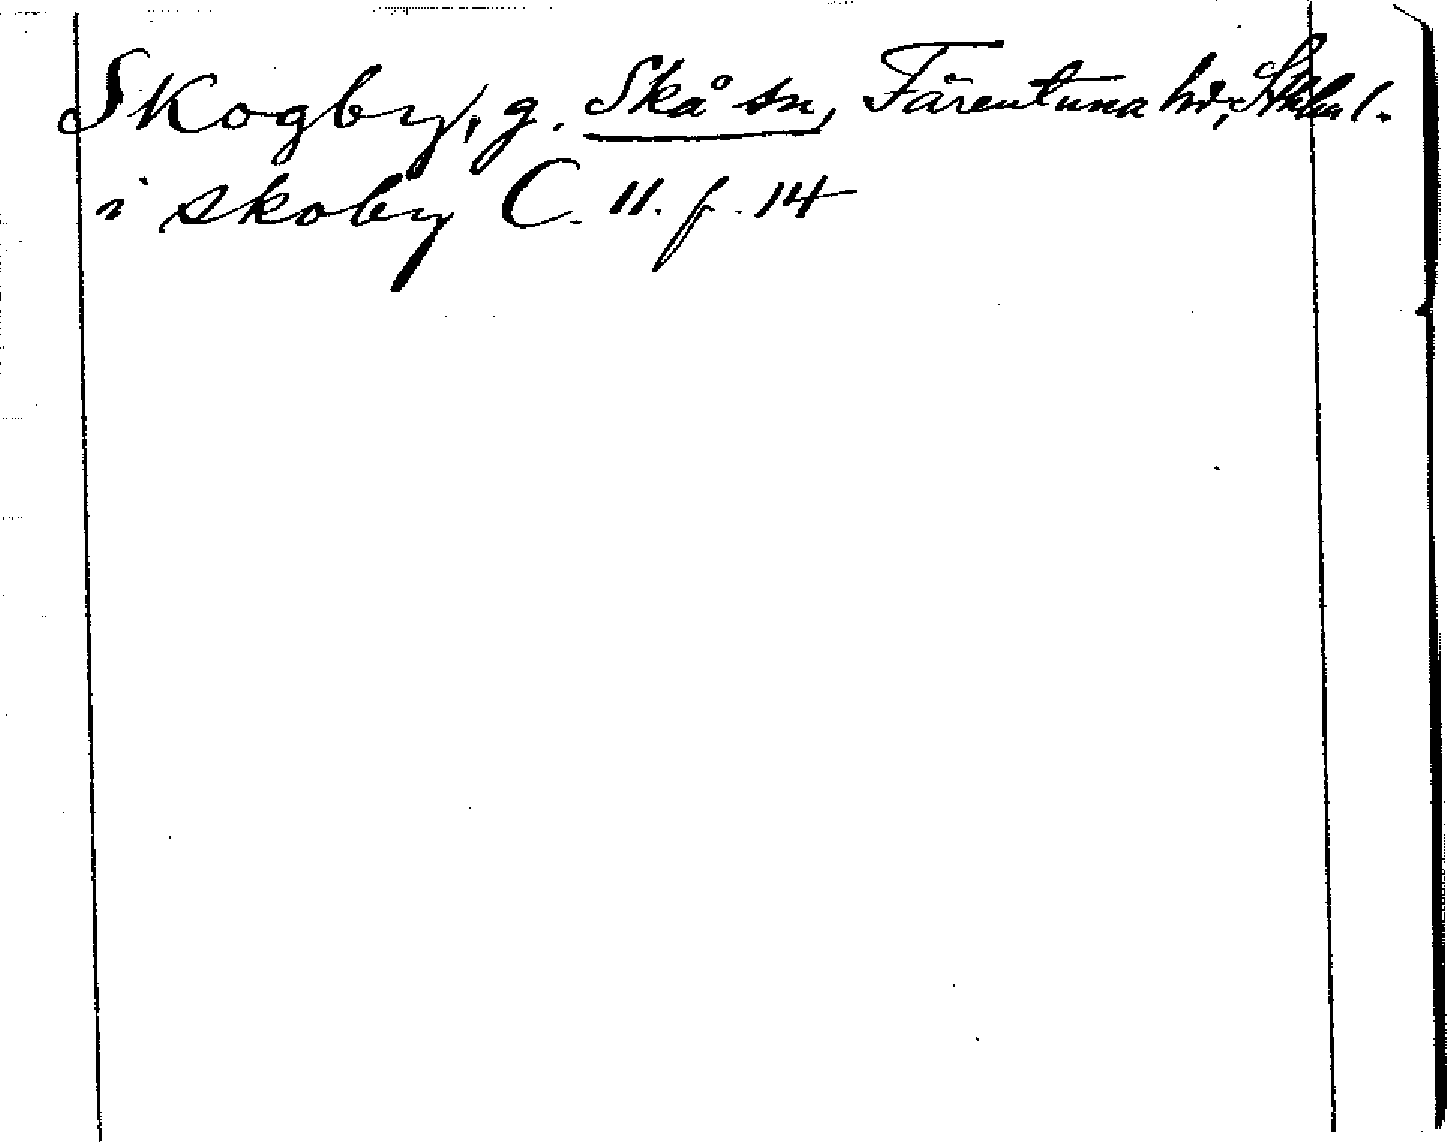 Skogby, g. Skå sn, Färentuna hd, Sthlms l.
i skoby C. 11. f. 14